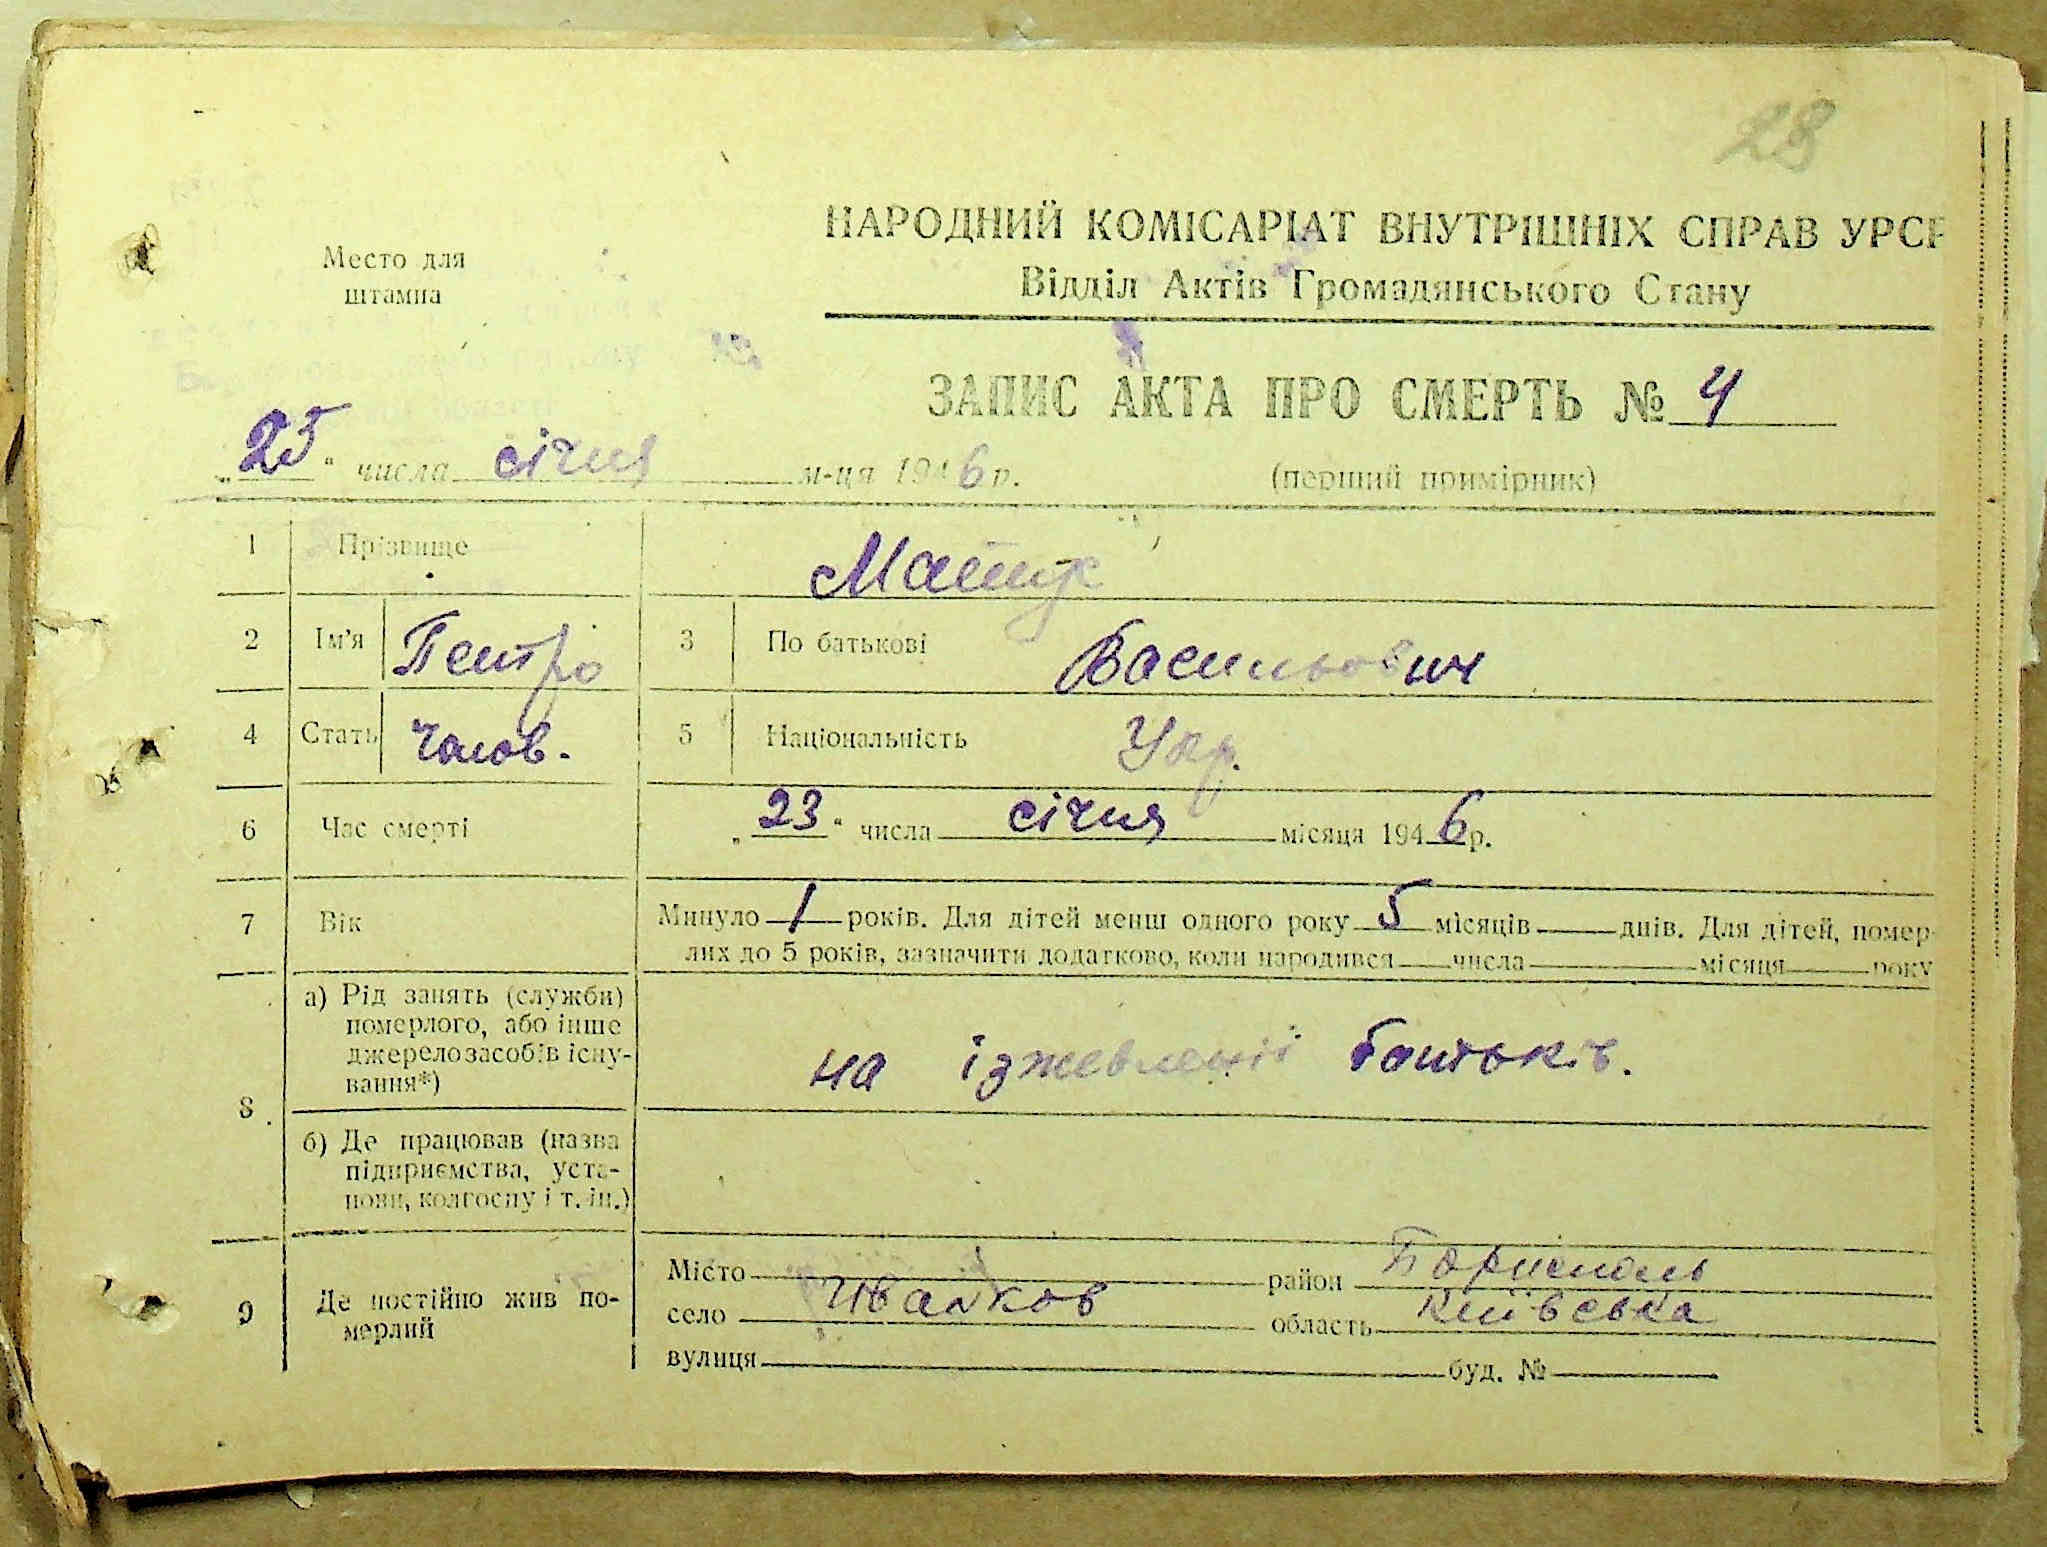 28
НАРОДНИЙ КОМІСАРІАТ ВНУТРІШНІХ СПРАВ УРСР
Место для штампа
Відділ Актів Громадянського Стану
ЗАПИС АКТА ПРО СМЕРТЬ № 4
„25“ числа січня м-ця 1946 р. (перший примірник)
1 Прізвище
2 Ім'я Петро 3 По батькові Васильович
4 Стать чолов. 5 Національність Укр.
6 Час смерті „23“ числа січня місяця 1946 р.
7 Вік Минуло 1 років. Для дітей менш одного року 5 місяців днів. Для дітей, помер-
лих до 5 років, зазначити додатково, коли народився числа місяця року
8 а) Рід занять (служби)
померлого, або інше
джерело засобів існу-
вання*) на іжевленії батьків.
б) Де працював (назва
підприємства, уста-
нови, колгоспу і т. ін.)
9 Де постійно жив по-
мерлий
Місто район Борисполь
село Иванков область Київська
вулиця буд. №